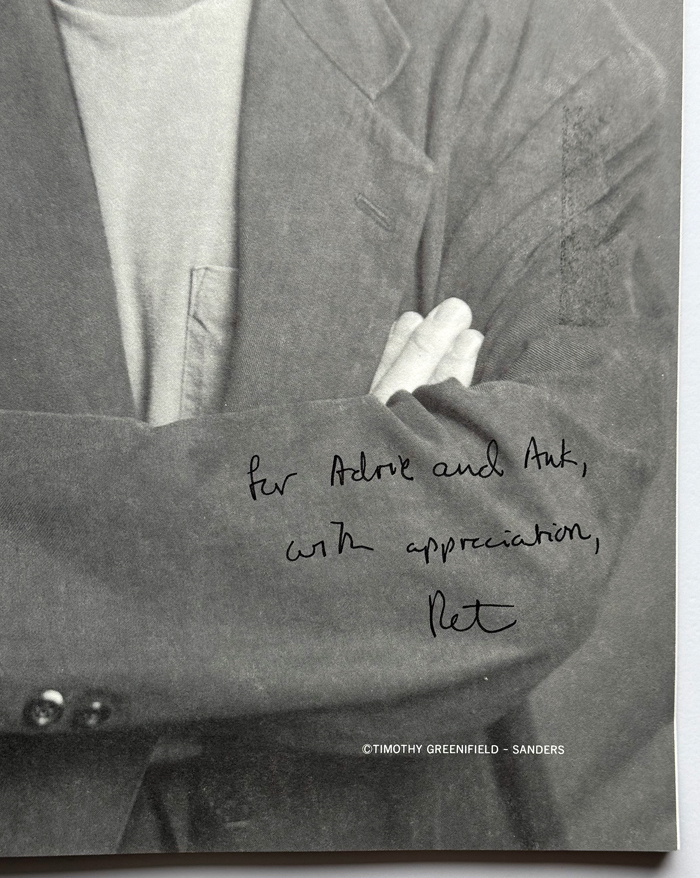 for Adrie and Ank,
with appreciation,
Ret
©TIMOTHY GREENIFIELD - SANDERS